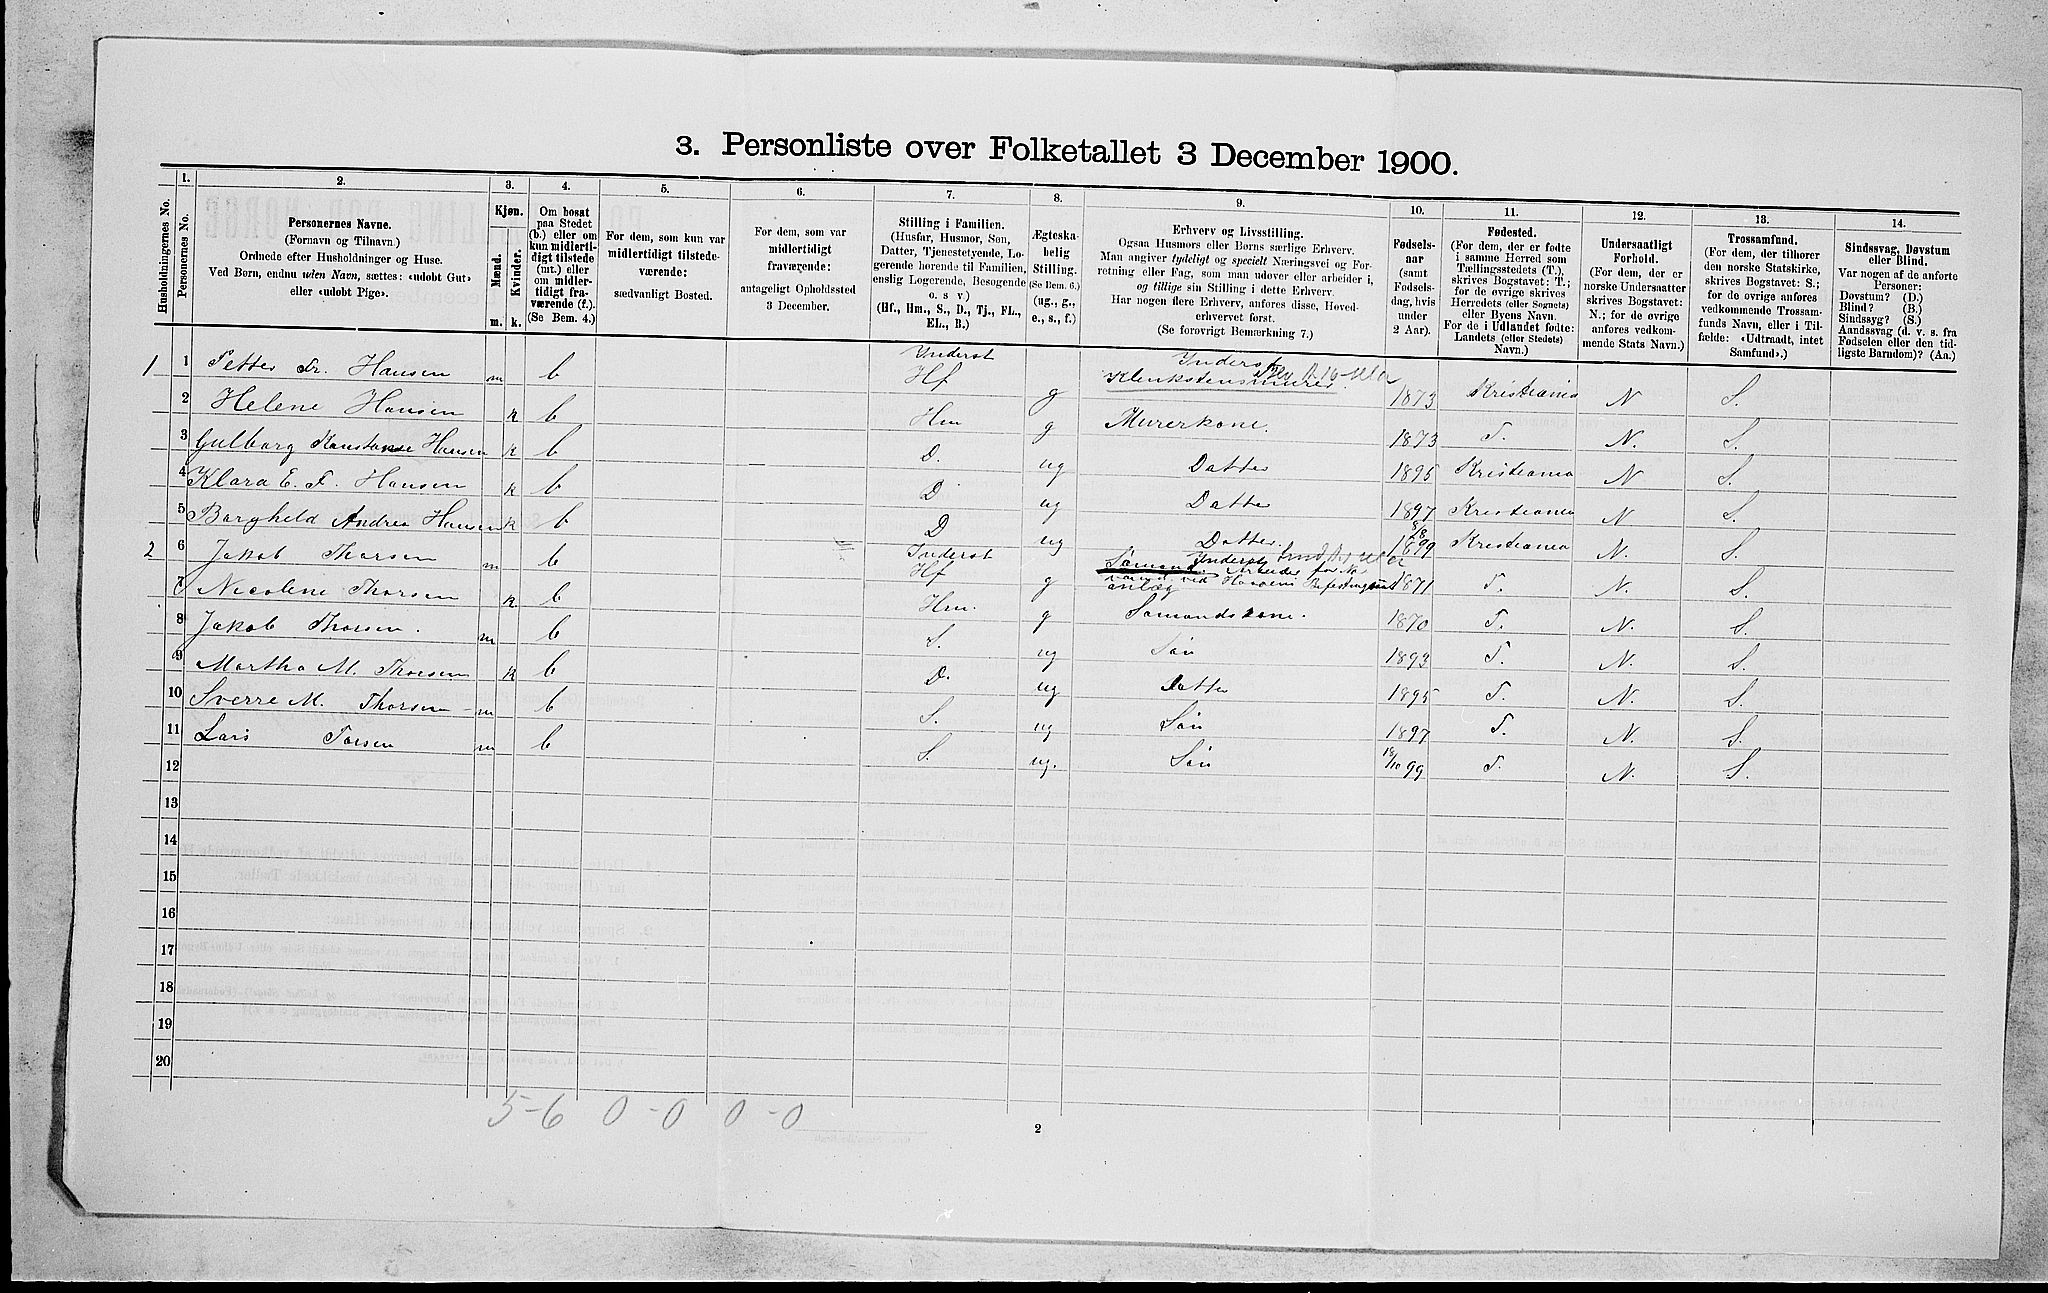 3. Personliste over Folketallet 3 December 1900.
Husholdningernes No.
1.
Personernes No.
2.
Personernes Navne.
(Fornavn og Tilnavn.)
Ordnede efter Husholdninger og Huse.
Ved Børn, endnu uden Navn, sættes: «udøbt Gut»
eller «udøbt Pige».
3.
Kjøn.
Mænd.
Kvinder.
m.
k.
4.
Om bosat
paa Stedet
(b.) eller om
kun midlerti-
digt tilstede
(mt.) eller
om midler-
tidigt fra-
værende (f.).
(Se Bem. 4.)
5.
For dem, som kun var
midlertidigt tilstede-
værende:
sædvanligt Bosted.
6.
For dem, som var
midlertidigt
fraværende:
antageligt Opholdssted
3 December.
7.
Stilling i Familien.
(Husfar, Husmor, Søn,
Datter, Tjenestetyende, Lo-
gerende hørende til Familien,
enslig Logerende, Besøgende
o. s v.)
(Hf., Hm., S., D., Tj., FL.,
EL., B.)
8.
Ægteska-
belig
Stilling.
(Se Bem. 6.)
(ug., g.,
e., s., f.)
9.
Erhverv og Livsstilling.
Ogsaa Husmors eller Børns særlige Erhverv.
Man angiver tydeligt og specielt Næringsvei og For-
retning eller Fag, som man udøver eller arbeider i,
og tillige sin Stilling i dette Erhverv.
Har nogen flere Erhverv, anføres disse, Hoved-
erhvervet først.
(Se forøvrigt Bemærkning 7.)
10.
Fødsels-
aar
(samt
Fødsels-
dag, hvis
under
2 Aar).
11.
Fødested.
(For dem, der er fødte
i samme Herred som
Tællingsstedets (T.),
skrives Bogstavet: T.;
for de øvrige skrives
Herredets (eller Sognets)
eller Byens Navn.
For de i Udlandet fødte:
Landets (eller Stedets)
Navn.)
12.
Undersaatligt
Forhold.
(For dem, der er
norske Undersaatter
skrives Bogstavet:
N.; for de øvrige
anføres vedkom-
mende Stats Navn.)
13.
Trossamfund.
(For dem, der tilhører
den norske Statskirke,
skrives Bogstavet: S.;
for de øvrige anføres
vedkommende Trossam-
funds Navn, eller i Til-
fælde: «Udtraadt, intet
Samfund».)
14.
Sindssvag, Døvstum
eller Blind.
Var nogen af de anførte
Personer:
Døvstum? (D.)
Blind? (B.)
Sindssyg? (S.)
Aandssvag (d. v. s. fra
Fødselen eller den tid-
ligste Barndom)? (Aa.)
1 1 Petter Fr. Hansen m b Inderst Hf g Inderst 1873 Kristiania N S.
2 Helene Hansen k b Hm g Murerkone. 1873 T. N. S.
3 Gulborg Konstanse Hansen k b D. ug Datter 1895 Kristiania N S.
4 Klara E. F. Hansen k b D ug Datter 1897 Kristiania N S.
5 Borghild Andrea Hansen k b D ug Datter. 1899 Kristiania N. S.
2 6 Jakob Thorsen m b Inderst Hf g Sømand. Inderst Arbeider anlæg 1871 T. N. S.
7 Nicoline Thorsen k b Hm. g Sømandskone. 1870 T. N. S.
8 Jakob Thorsen. m b S. ug Søn 1893 T. N. S.
9 Martha M. Thorsen k b D. ug Datter 1895 T. N. S.
10 Sverre M. Thorsen m b S. ug Søn 1897 T. N. S.
11 Lars Torsen m b S. ug. Søn 19/10 99 T. N. S.
12
13
14
15
16
17
18
19
20
5-6 0-0 0-0
2